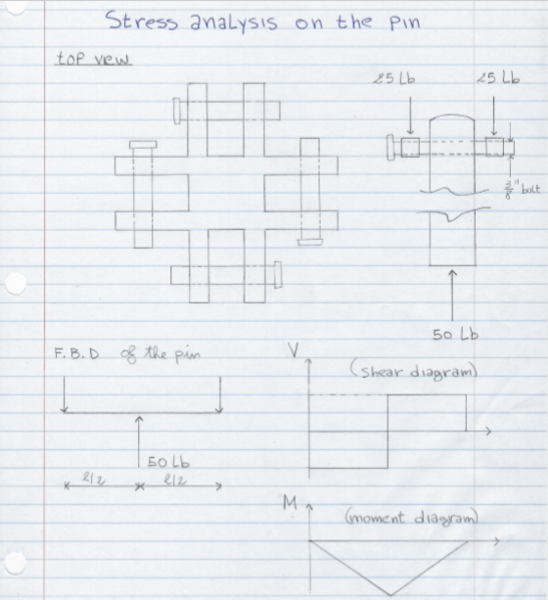 Stress analysis on the pin
top view
25 Lb 25 Lb
3/8" bolt
50 Lb
F.B.D of the pin
V
(shear diagram)
50 Lb
l/2 l/2
M
(moment diagram)